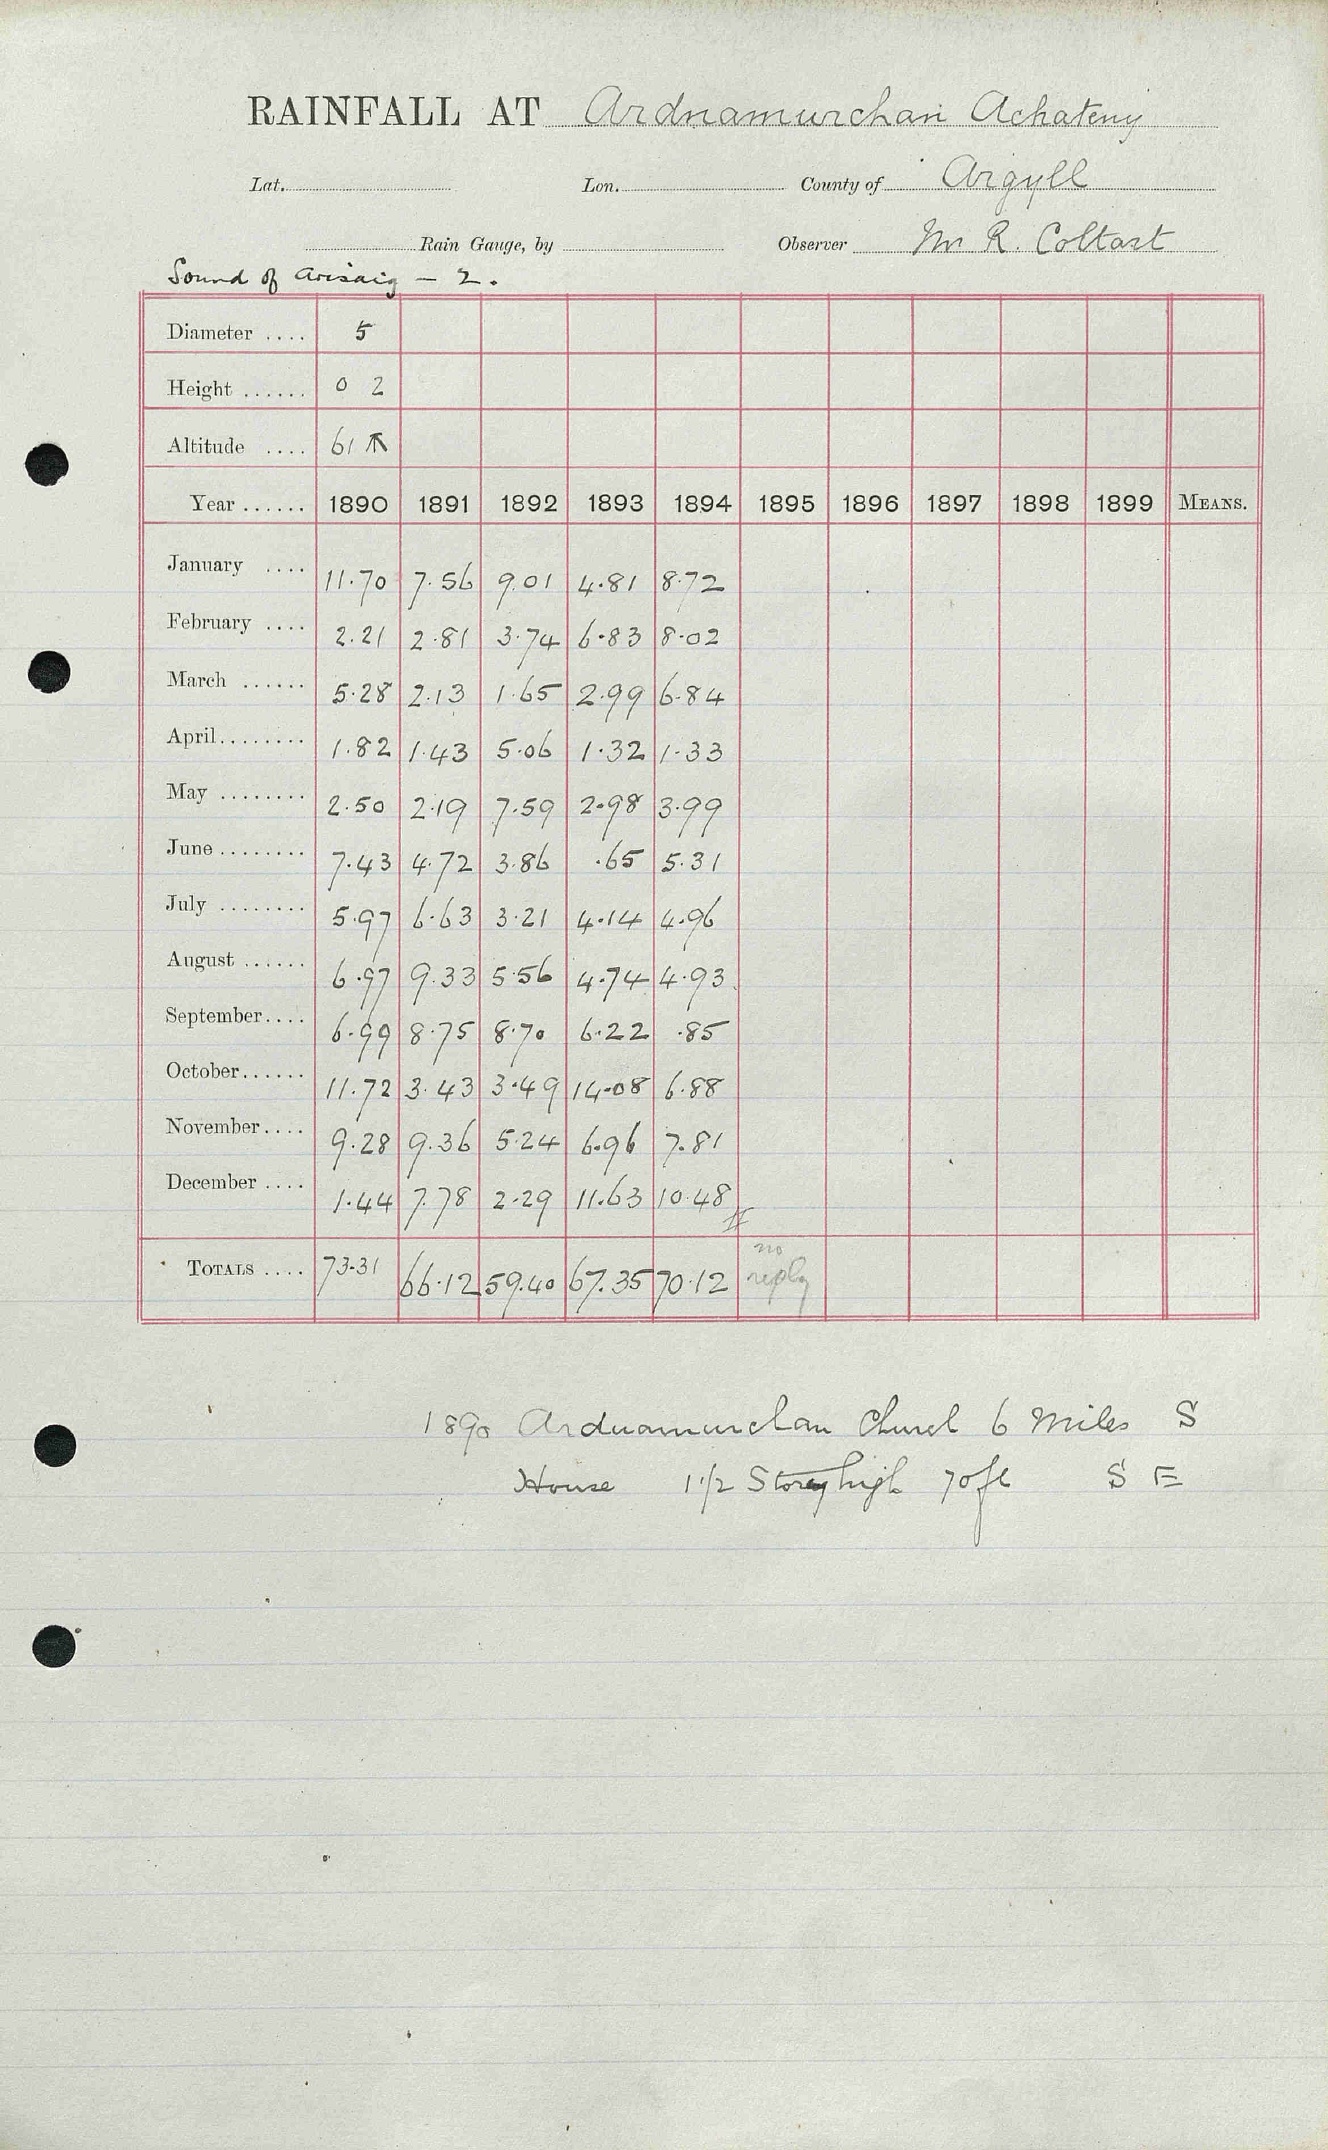 RAINFALL AT Ardnamurchan Achateny
Lat. Lon. County of Argyll
Rain Gauge, by Observer Mr R. Coltart
Sound of Arisaig — 2.
Diameter .... 5
Height ...... 0 2
Altitude .... 61
Year ...... 1890 1891 1892 1893 1894 1895 1896 1897 1898 1899 MEANS.
January .... 11.70 7.56 9.01 4.81 8.72
February .... 2.21 2.81 3.74 6.83 8.02
March ...... 5.28 2.13 1.65 2.99 6.84
April........ 1.82 1.43 5.06 1.32 1.33
May ........ 2.50 2.19 7.59 2.98 3.99
June ........ 7.43 4.72 3.86 .65 5.31
July ........ 5.97 6.63 3.21 4.14 4.96
August ...... 6.97 9.33 5.56 4.74 4.93
September.... 6.99 8.75 8.70 6.22 .85
October...... 11.72 3.43 3.49 14.08 6.88
November.... 9.28 9.36 5.24 6.96 7.81
December .... 1.44 7.78 2.29 11.63 10.48
TOTALS .... 73.31 66.12 59.40 67.35 70.12 no reply
1890 Ardnamurchan Church 6 Miles S
House 1 1/2 Storey high 70 ft S E